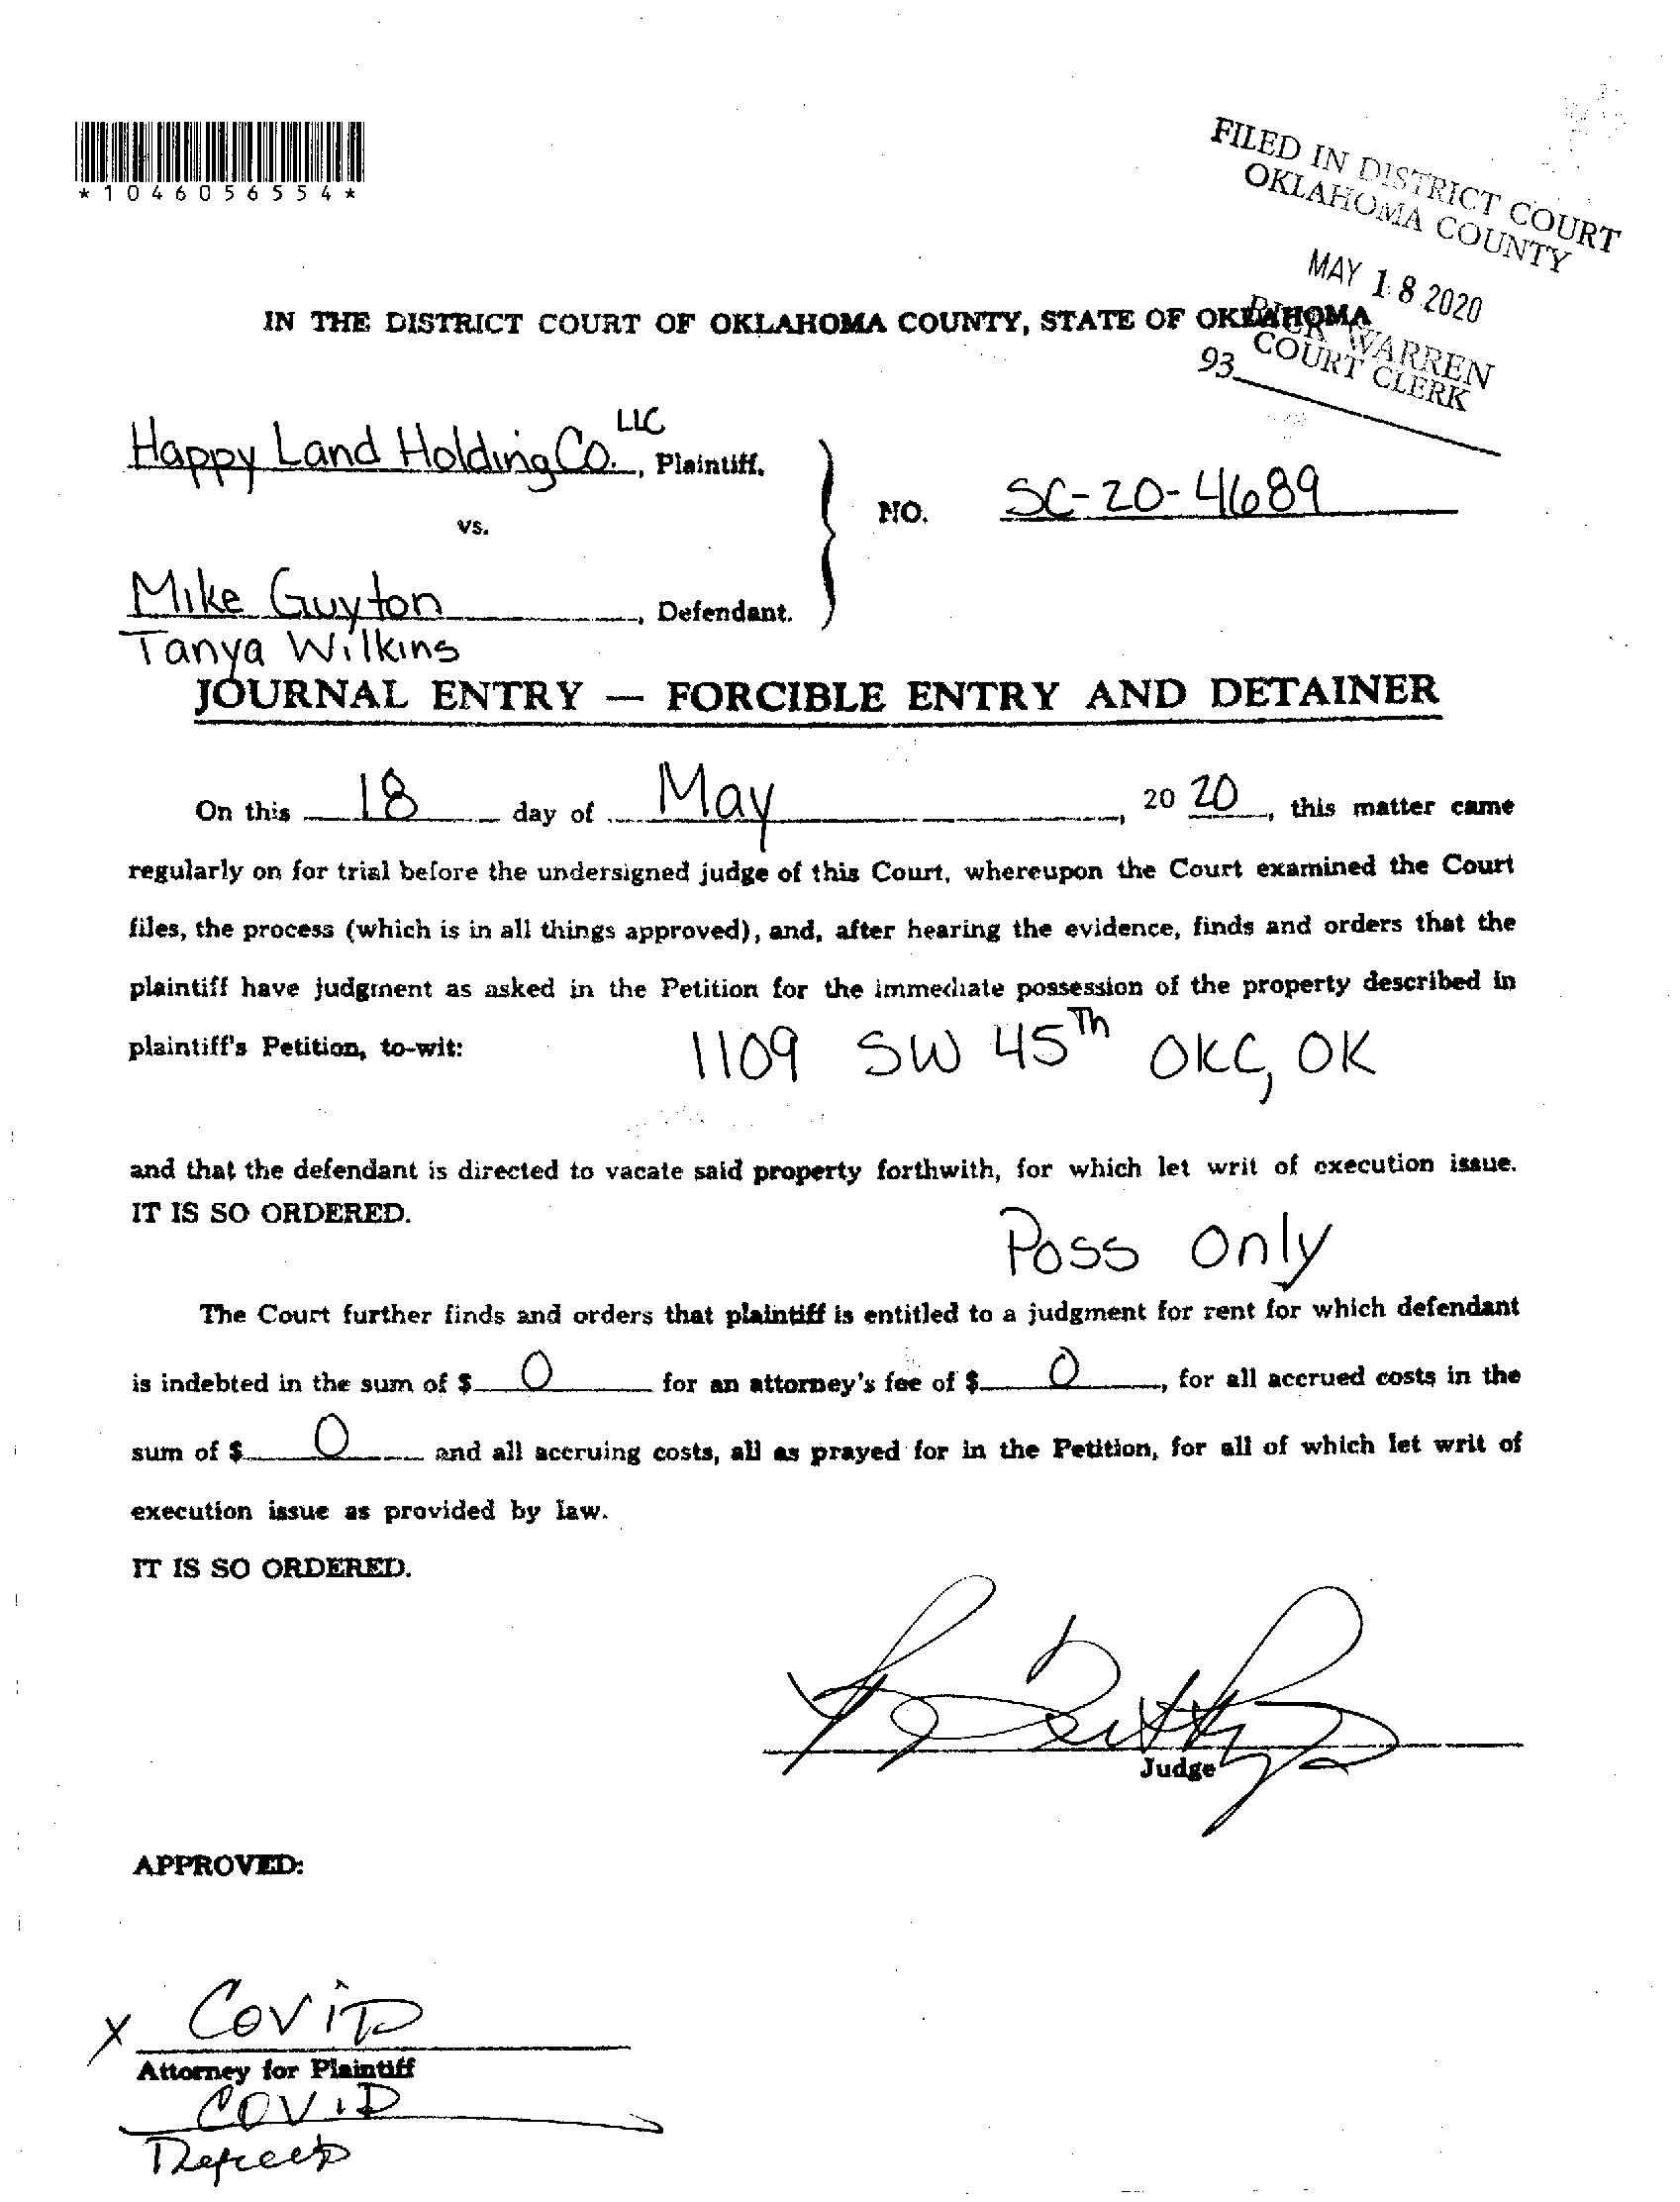 *1046056554*
FILED IN DISTRICT COURT
OKLAHOMA COUNTY
MAY 18 2020
IN THE DISTRICT COURT OF OKLAHOMA COUNTY, STATE OF OKLAHOMA
WARREN
COURT CLERK
93
Happy Land Holding Co. LLC, Plaintiff,
vs.
NO. SC-20-4689
Mike Guyton, Defendant.
Tanya Wilkins
JOURNAL ENTRY — FORCIBLE ENTRY AND DETAINER
On this 18 day of May, 20 20, this matter came
regularly on for trial before the undersigned judge of this Court, whereupon the Court examined the Court
files, the process (which is in all things approved), and, after hearing the evidence, finds and orders that the
plaintiff have judgment as asked in the Petition for the immediate possession of the property described in
plaintiff's Petition, to-wit: 1109 SW 45Th OKC, OK
and that the defendant is directed to vacate said property forthwith, for which let writ of execution issue.
IT IS SO ORDERED.
Poss Only
The Court further finds and orders that plaintiff is entitled to a judgment for rent for which defendant
is indebted in the sum of $ 0 for an attorney's fee of $ 0, for all accrued costs in the
sum of $ 0 and all accruing costs, all as prayed for in the Petition, for all of which let writ of
execution issue as provided by law.
IT IS SO ORDERED.
Judge
APPROVED:
x COVID
Attorney for Plaintiff
COVID